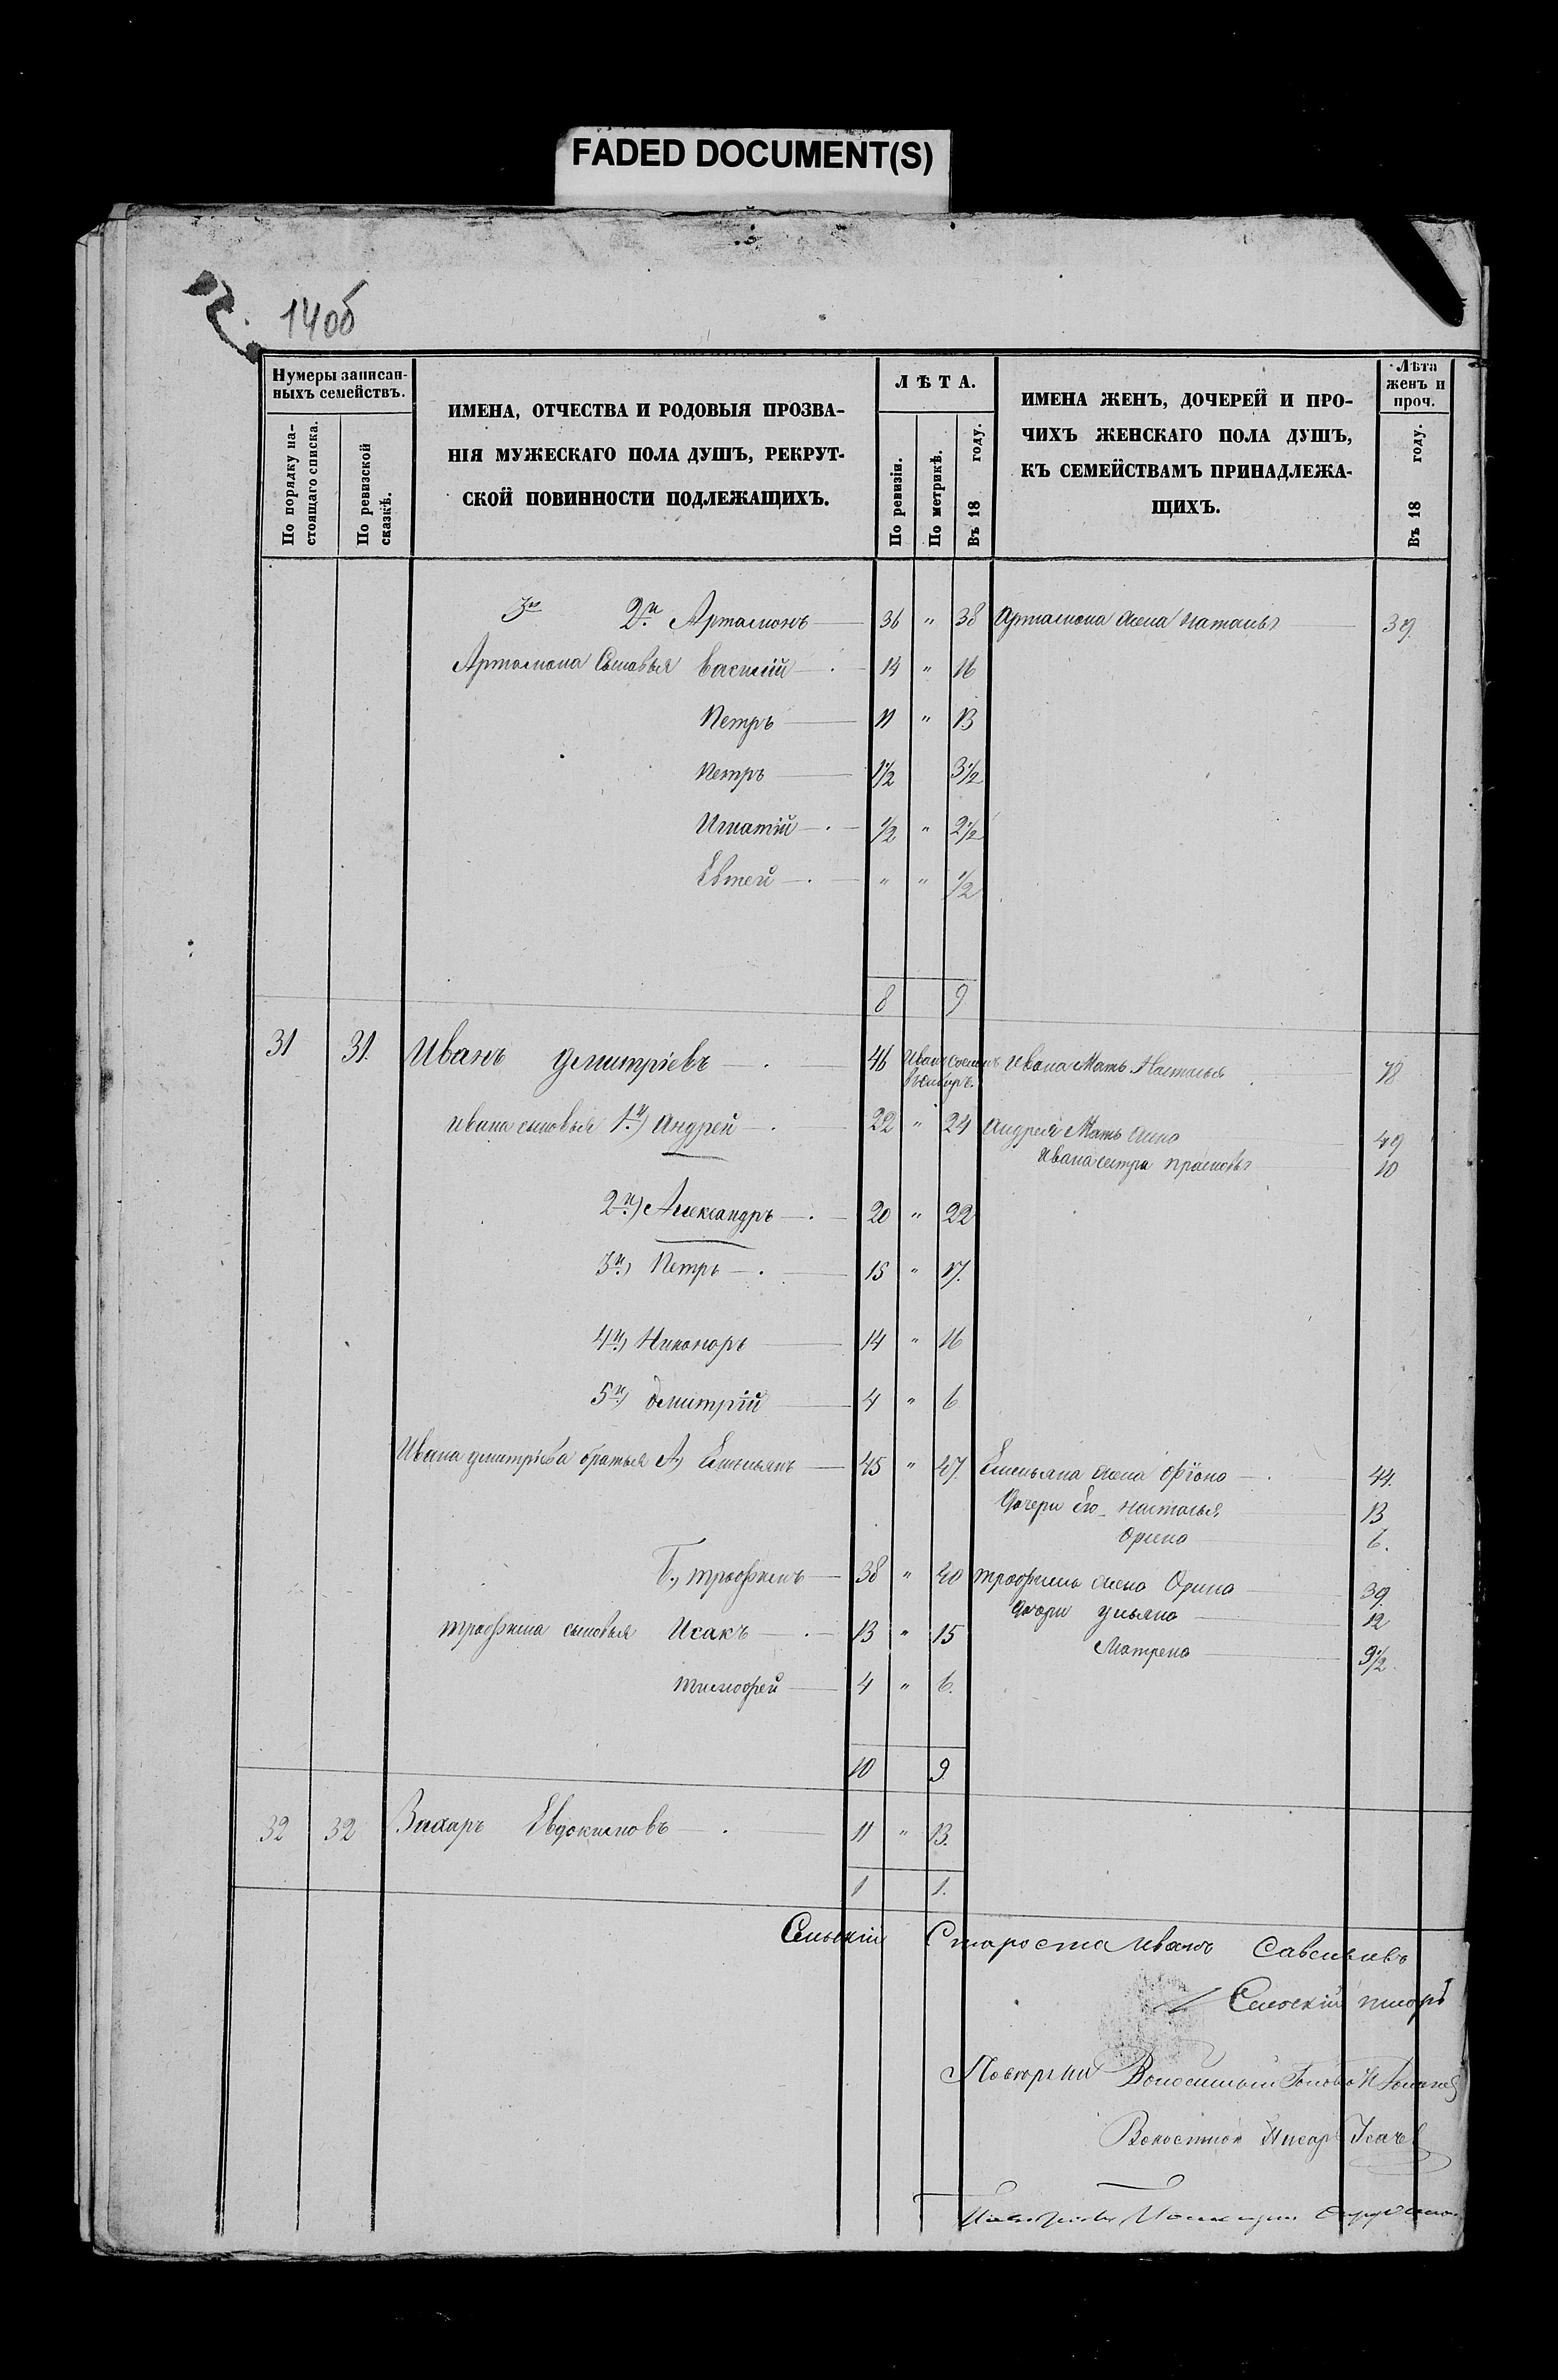 FADED DOCUMENT(S)
140б
Нумеры записан-
ныхъ семействъ.
По порядку на-
стоящаго списка.
По ревизской
сказкѣ.
ИМЕНА, ОТЧЕСТВА И РОДОВЫЯ ПРОЗВА-
НІЯ МУЖЕСКАГО ПОЛА ДУШЪ, РЕКРУТ-
СКОЙ ПОВИННОСТИ ПОДЛЕЖАЩИХЪ.
ЛѢТА.
По ревизіи.
По метрикѣ.
Въ 18 году.
ИМЕНА ЖЕНЪ, ДОЧЕРЕЙ И ПРО-
ЧИХЪ ЖЕНСКАГО ПОЛА ДУШЪ,
КЪ СЕМЕЙСТВАМЪ ПРИНАДЛЕЖА-
ЩИХЪ.
Лѣта
женъ и
проч.
Въ 18 году.
2й Артамонъ 36 " 38 Артамона жена 39
Артамона сыновья Василій 14 " 16
Петръ 11 " 13
Петръ 1½ 3½
Игнатій ½ " 2½
Евтей " " ½
8 9
31 31. Иванъ Дмитріевъ 46 Иванъ сосланъ въ Сибирь. Ивана мать Наталья 78
Ивана сыновья 1й) Андрей 22 " 24 Андрея мать Анна 49
Ивана сестра 10
2й) Александръ 20 " 22
3й) Петръ 15 " 17.
4й) Никоноръ 14 " 16
5й) Дмитрій 4 " 6
Ивана Дмитріева братья А) Емельянъ 45 " 47. Емельяна жена Фіона 44.
Дочери его Наталья 13
Орина 6.
Б) Трофимъ 38 " 40 Трофима жена Орина 39.
Дочери Ульяна 12
Трофима сыновья Исакъ 13 " 15
Матрена 9½
Тимофей 4 " 6.
10 9
32 32 Захаръ Евдокимовъ 11 " 13.
1 1.
Сельскій Староста Иванъ Савельевъ
Сельскій писарь
Волостной Голова
Волостной Писарь